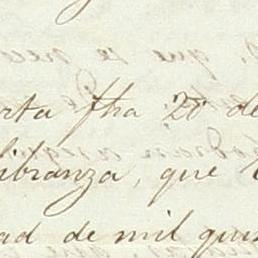 rta fha 20 de
libranza, que
ad de mil quin